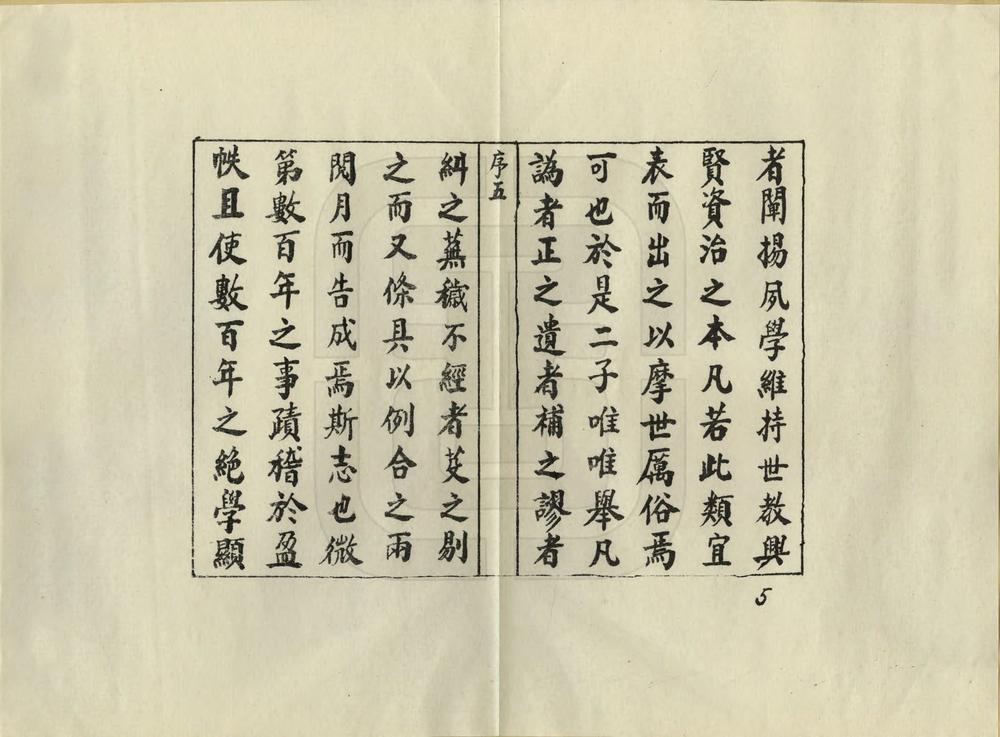 者闡揚夙學維持世教興
賢資治之本凡若此類宜
表而出之以摩世厲俗焉
可也於是二子唯唯舉凡
譌者正之遺者補之謬者
序五
糾之蕪穢不經者芟之剔
之而又條具以例合之兩
閱月而告成焉斯志也微
第數百年之事蹟稽於盈
帙且使數百年之絶學顯
5